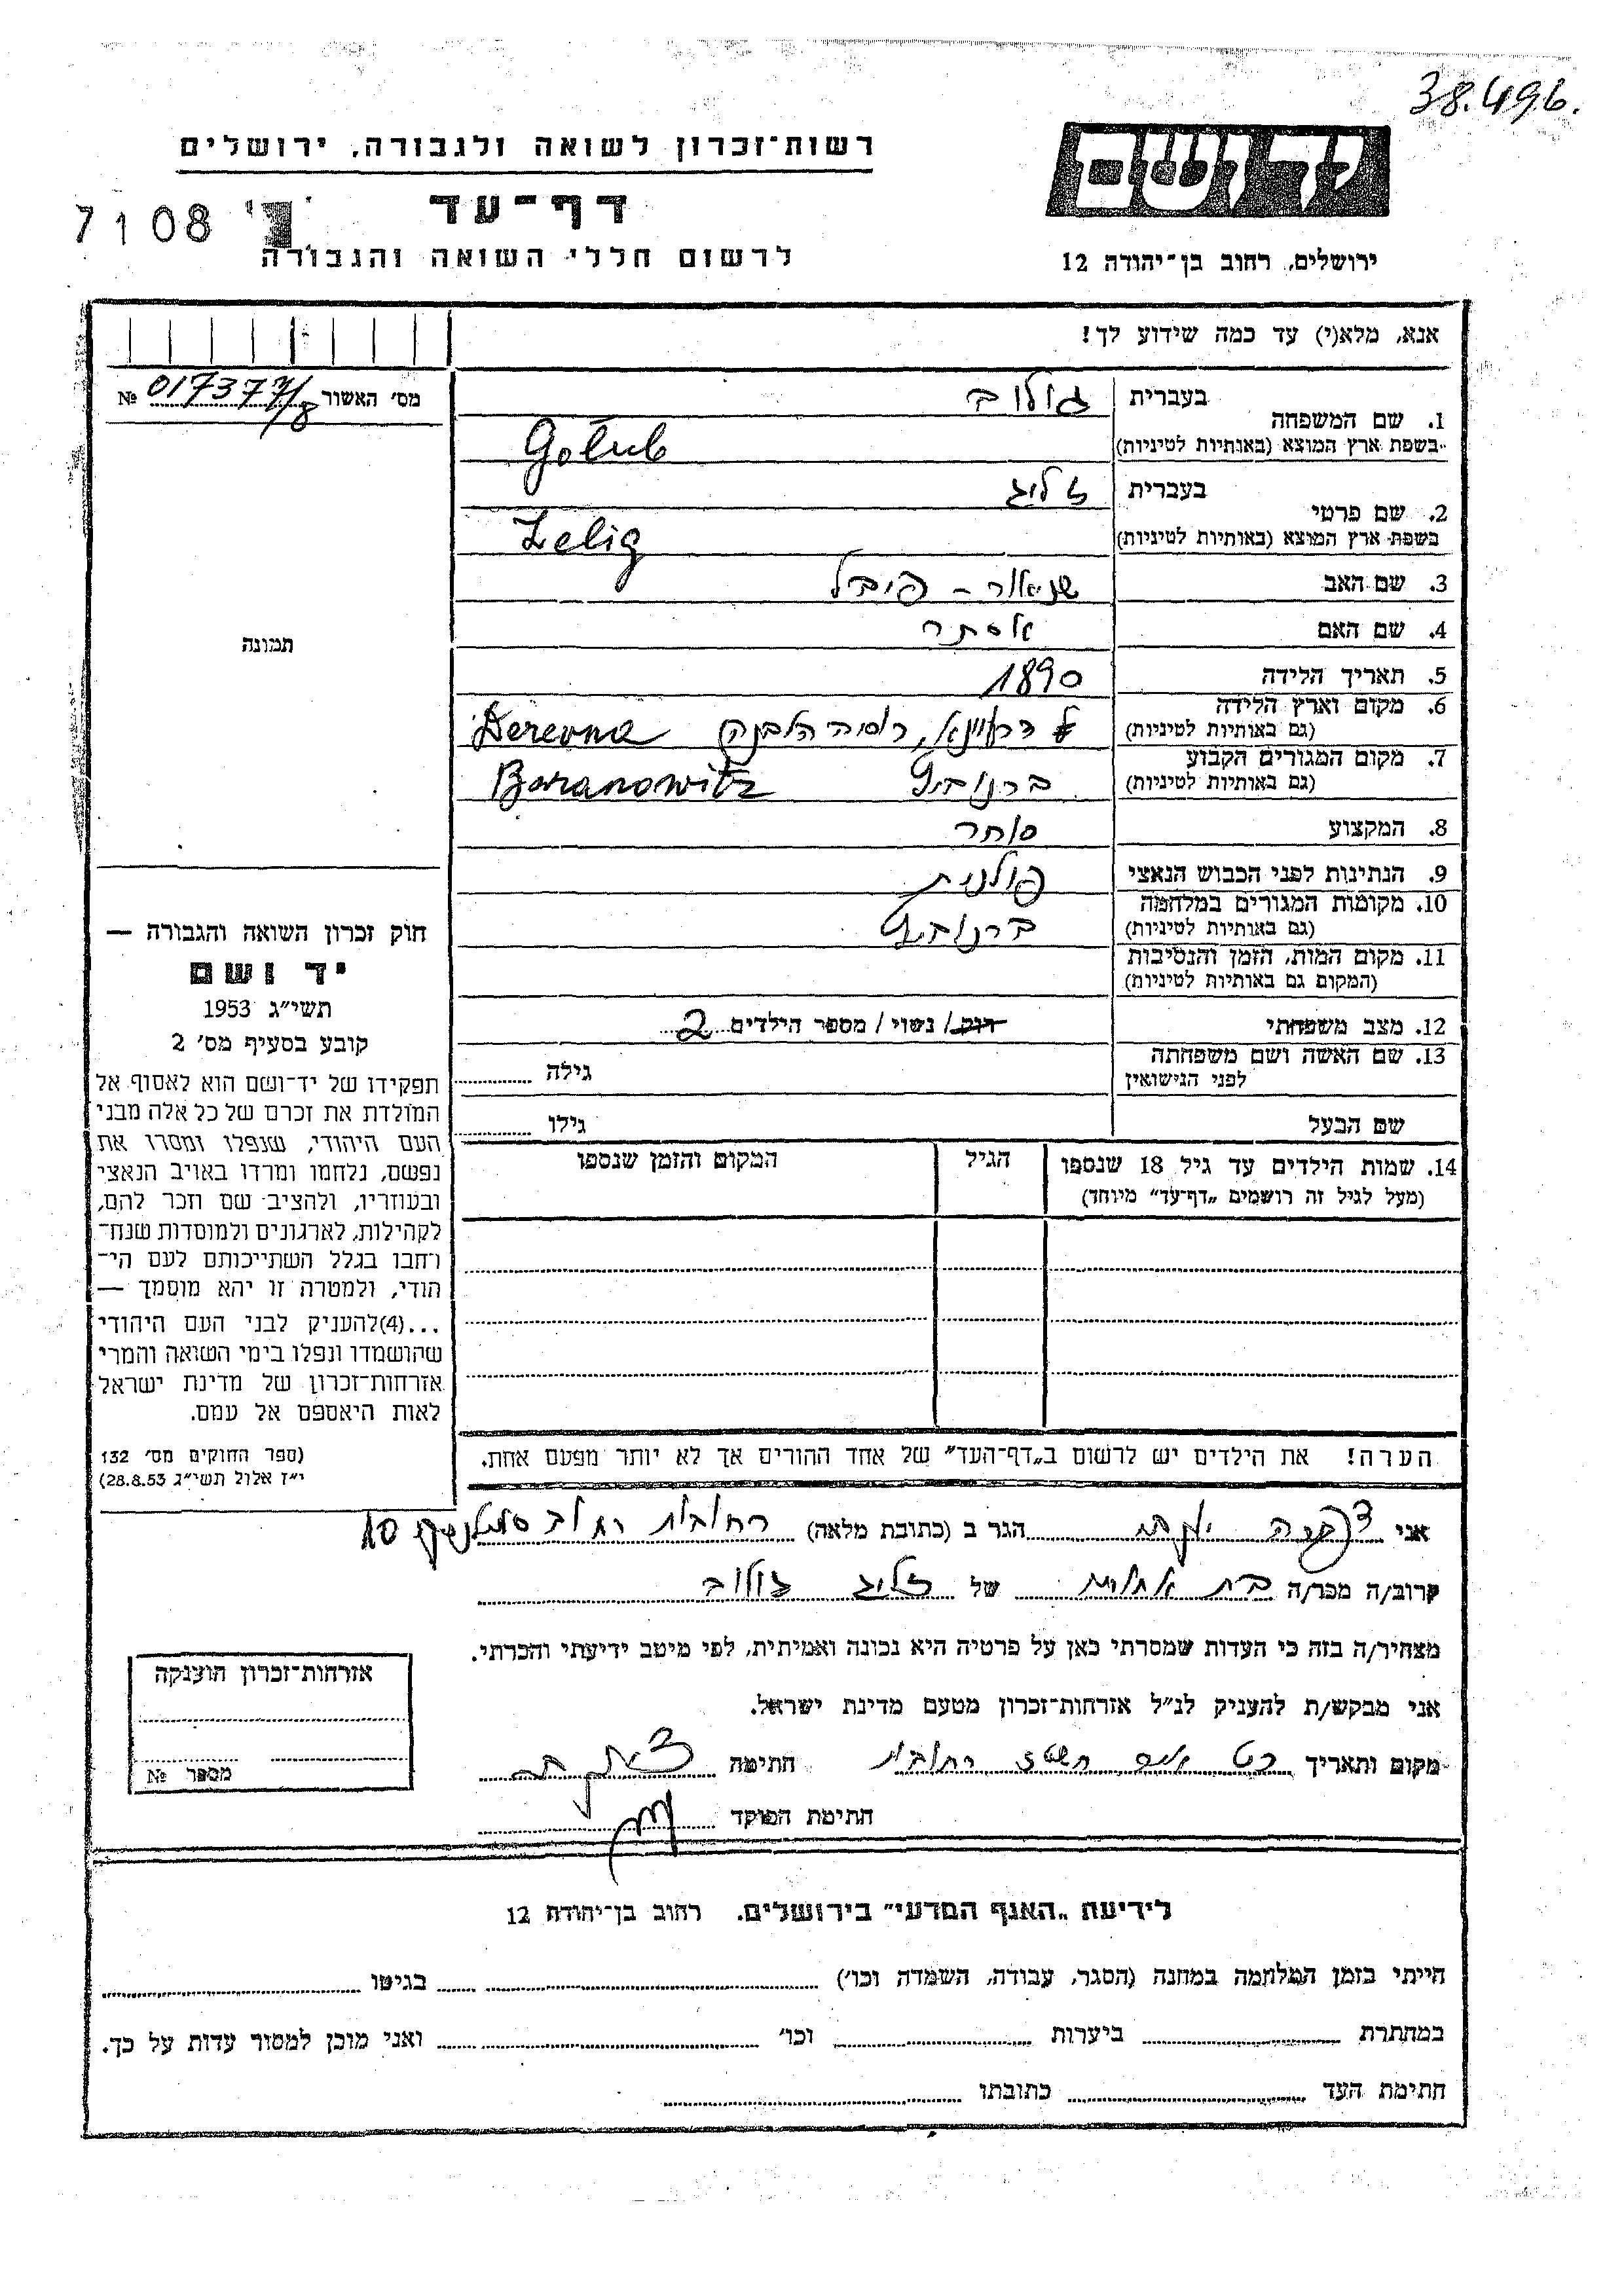 38.496.
רשות־זכרון לשואה ולגבורה, ירושלים
יד ושם
דף־עד
7108
לרשום חללי השואה והגבורה
ירושלים, רחוב בן־יהודה 12
אנא, מלא(י) עד כמה שידוע לך!
מס׳ האשור № 017377/8
1. שם המשפחה
בעברית גולוב
בשפת ארץ המוצא (באותיות לטיניות) Gołub
2. שם פרטי
בעברית זליג
בשפת ארץ המוצא (באותיות לטיניות) Zelig
3. שם האב שניאור - פיבל
4. שם האם אסתר
5. תאריך הלידה 1890
6. מקום וארץ הלידה
(גם באותיות לטיניות) רוסיה הלבנה Derevna
7. מקום המגורים הקבוע
(גם באותיות לטיניות) ברנוביץ Baranowitz
8. המקצוע סוחר
9. הנתינות לפני הכבוש הנאצי פולנית
10. מקומות המגורים במלחמה
(גם באותיות לטיניות) ברנוביץ
11. מקום המות, הזמן והנסיבות
(המקום גם באותיות לטיניות)
12. מצב משפחתי רוק/ נשוי / מספר הילדים 2
13. שם האשה ושם משפחתה
לפני הנישואין
גילה
שם הבעל גילו
14. שמות הילדים עד גיל 18 שנספו
(מעל לגיל זה רושמים „דף־עד” מיוחד)
הגיל
המקום והזמן שנספו
הערה! את הילדים יש לרשום ב„דף־העד” של אחד ההורים אך לא יותר מפעם אחת.
תמונה
חוק זכרון השואה והגבורה —
יד ושם
תשי״ג 1953
קובע בסעיף מס׳ 2
תפקידו של יד־ושם הוא לאסוף אל
המולדת את זכרם של כל אלה מבני
העם היהודי, שנפלו ומסרו את
נפשם, נלחמו ומרדו באויב הנאצי
ובעוזריו, ולהציב שם וזכר להם,
לקהילות, לארגונים ולמוסדות שנח־
רחבו בגלל השתייכותם לעם הי־
הודי, ולמטרה זו יהא מוסמך —
...(4)להעניק לבני העם היהודי
שהושמדו ונפלו בימי השואה והמרי
אזרחות־זכרון של מדינת ישראל
לאות היאספם אל עמם.
(ספר החוקים מס׳ 132
י״ז אלול תשי״ג 28.8.53)
אני הגר ב (כתובת מלאה) רחובות רחוב 10
קרוב/ה מכר/ה בת אחות של זליג גולוב
מצהיר/ה בזה כי העדות שמסרתי כאן על פרטיה היא נכונה ואמיתית, לפי מיטב ידיעתי והכרתי.
אני מבקש/ת להעניק לנ״ל אזרחות־זכרון מטעם מדינת ישראל.
מקום ותאריך רחובות חתימה
חתימת הפוקד
אזרחות־זכרון הוענקה
מספר №
לידיעת „האגף המדעי” בירושלים. רחוב בן־יהודה 12
הייתי בזמן המלחמה במחנה (הסגר, עבודה, השמדה וכו׳) בגיטו
במחתרת ביערות וכו׳ ואני מוכן למסור עדות על כך.
חתימת העד כתובתו